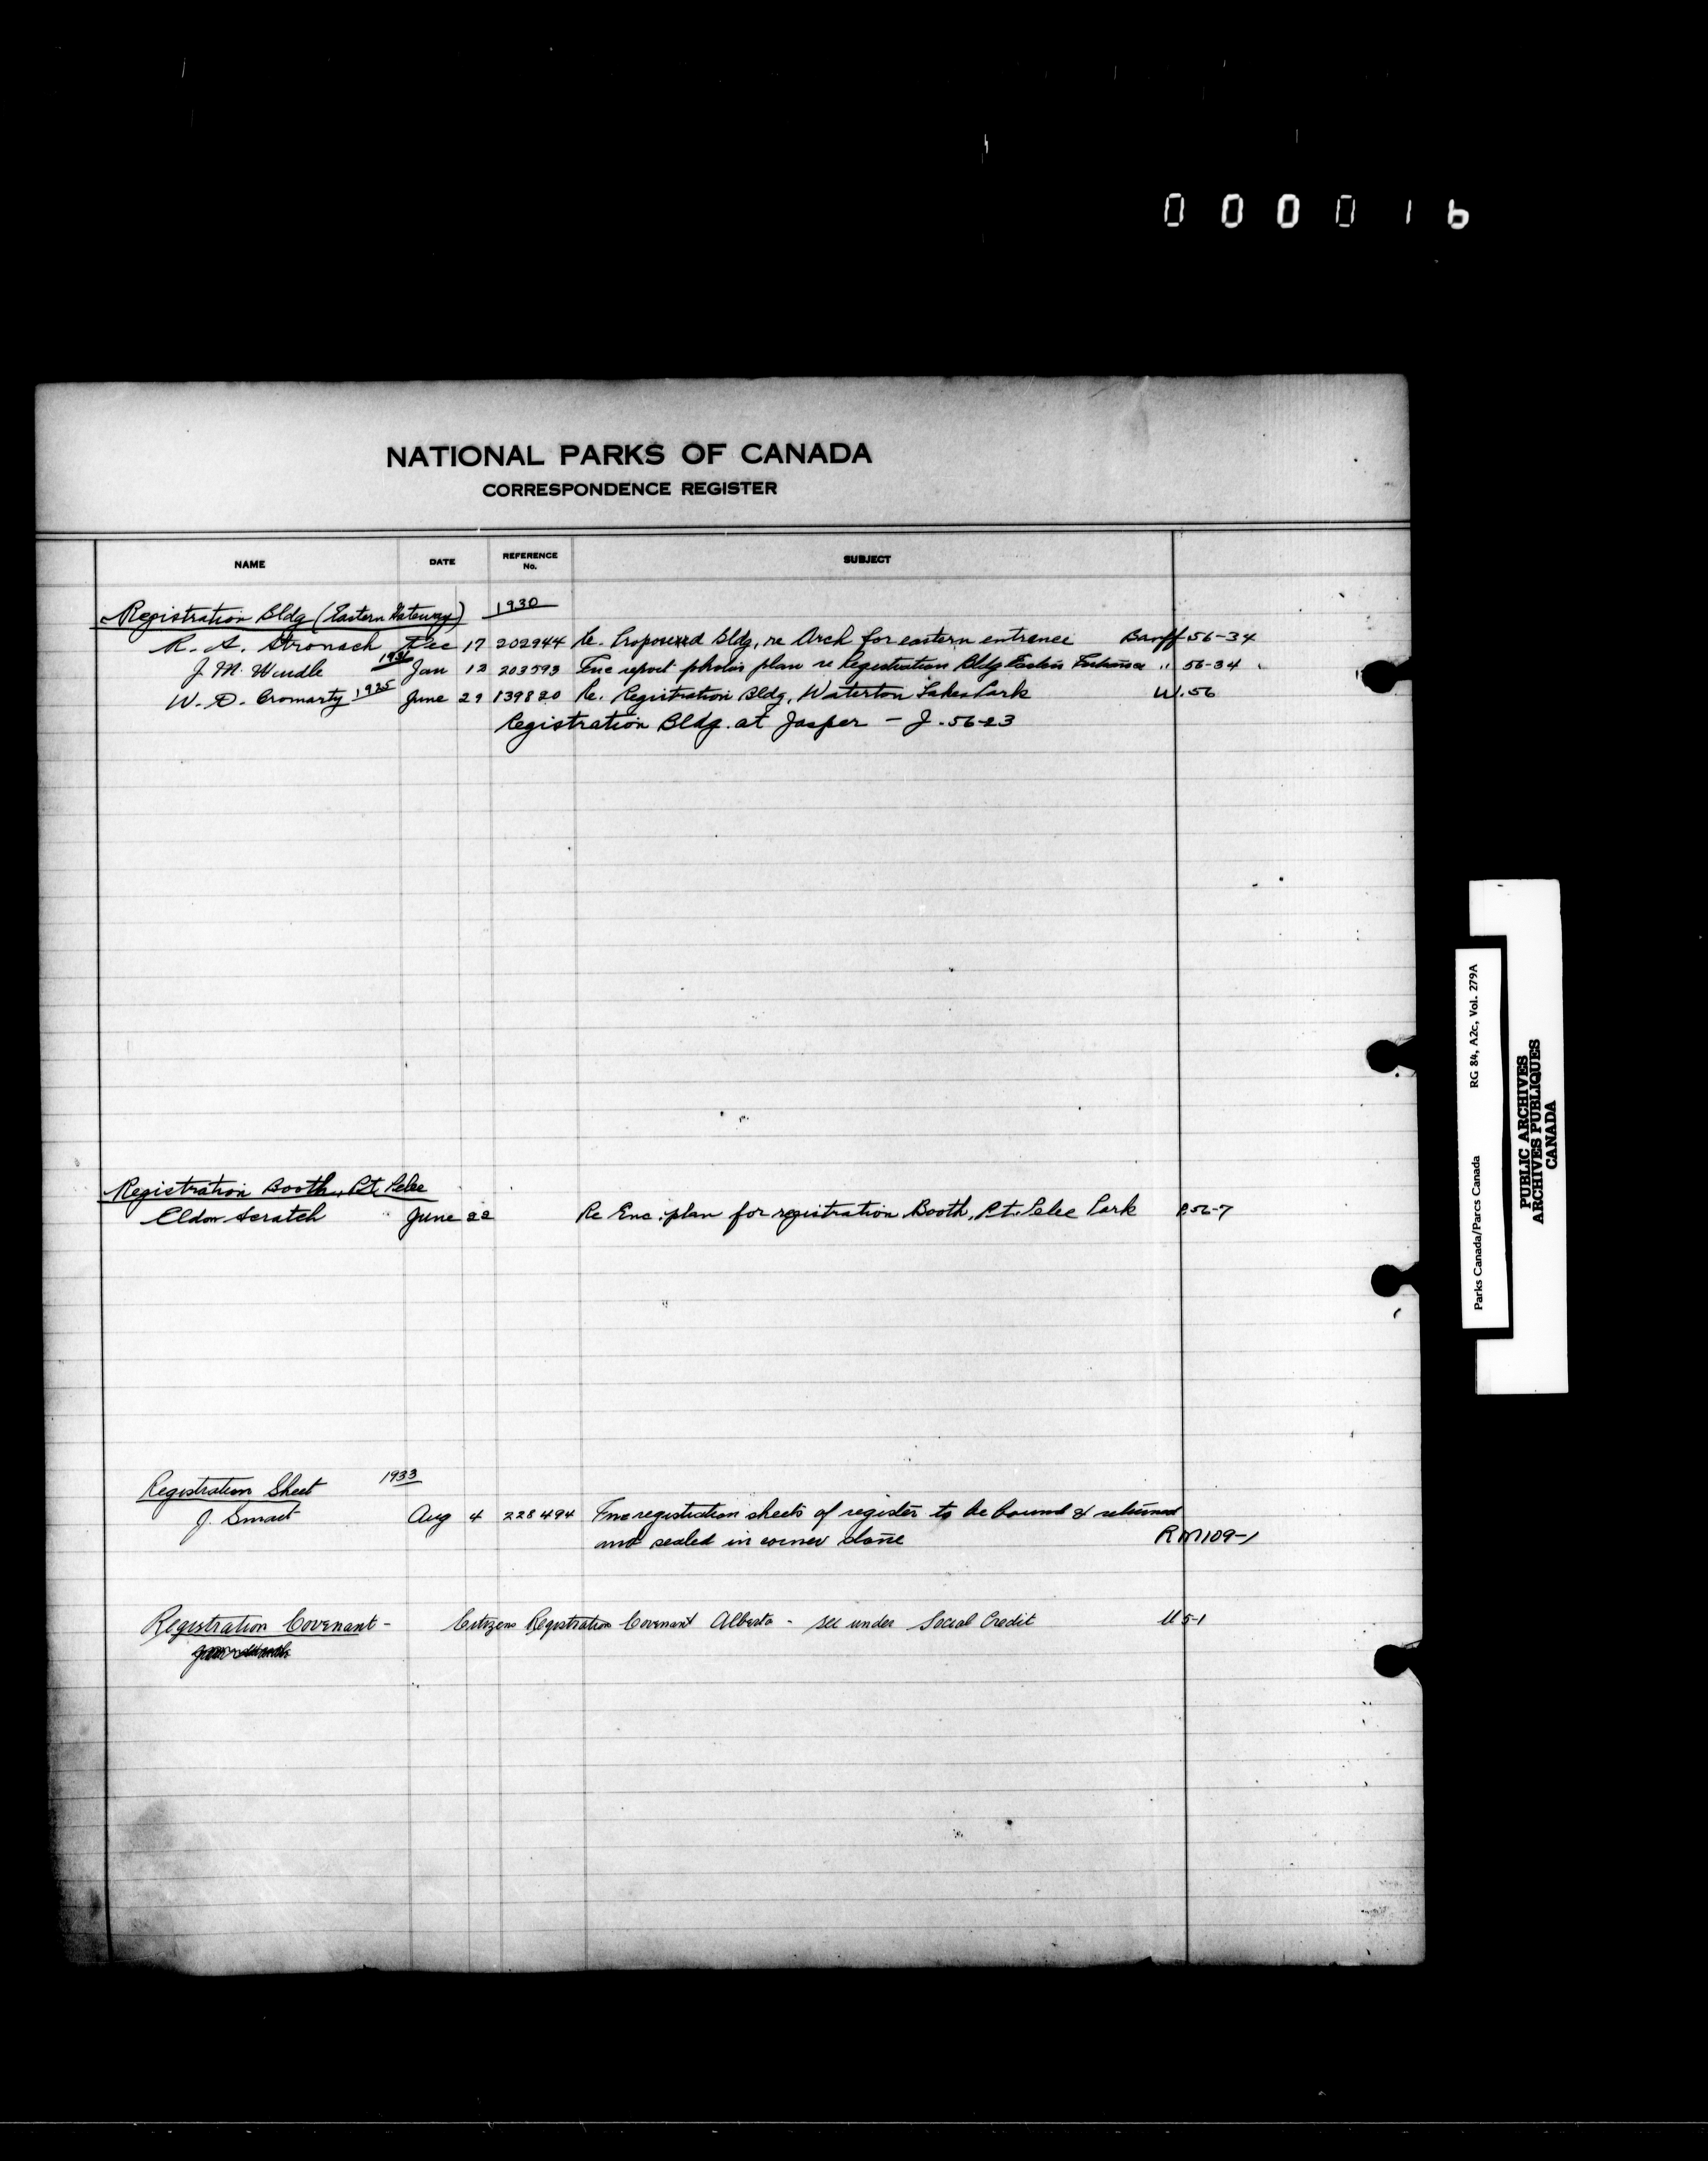 000016
NATIONAL PARKS OF CANADA
CORRESPONDENCE REGISTER
NAME DATE REFERENCE No. SUBJECT
Registration Bldg (Eastern Gateway) 1930
R. A. Stronach Dec 17 202944 Re. Proposed Bldg, re Arch for eastern entrance Banff 56-34
J. M. Wardle 1931 Jan 12 203593 Enc report photos plan re Registration Bldg Eastern Entrance " 56-34
W. D. Cromarty 1925 June 29 139820 Re. Registration Bldg, Waterton Lakes Park W. 56
Registration Bldg. at Jasper - J. 56-23
Registration Booth, Pt. Pelee
Eldon Scratch June 22 Re Enc. plan for registration Booth, Pt. Pelee Park P.56-7
Registration Sheet 1933
J. Smart Aug 4 228494 Enc registration sheets of register to be bound & returned
and sealed in corner stone RM109-1
Registration Covenant - Citizens Registration Covenant Alberta - see under Social Credit U5-1
Parks Canada/Parcs Canada RG 84, A2c, Vol. 279A
PUBLIC ARCHIVES
ARCHIVES PUBLIQUES
CANADA